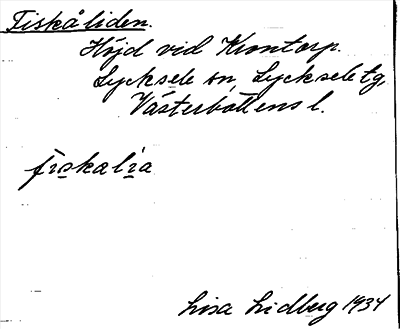 Fiskåliden.
Höjd vid Krontorp.
Lycksele sn, Lycksele tg,
Västerbottens l.
fiskalia
Lisa Lidberg 1934